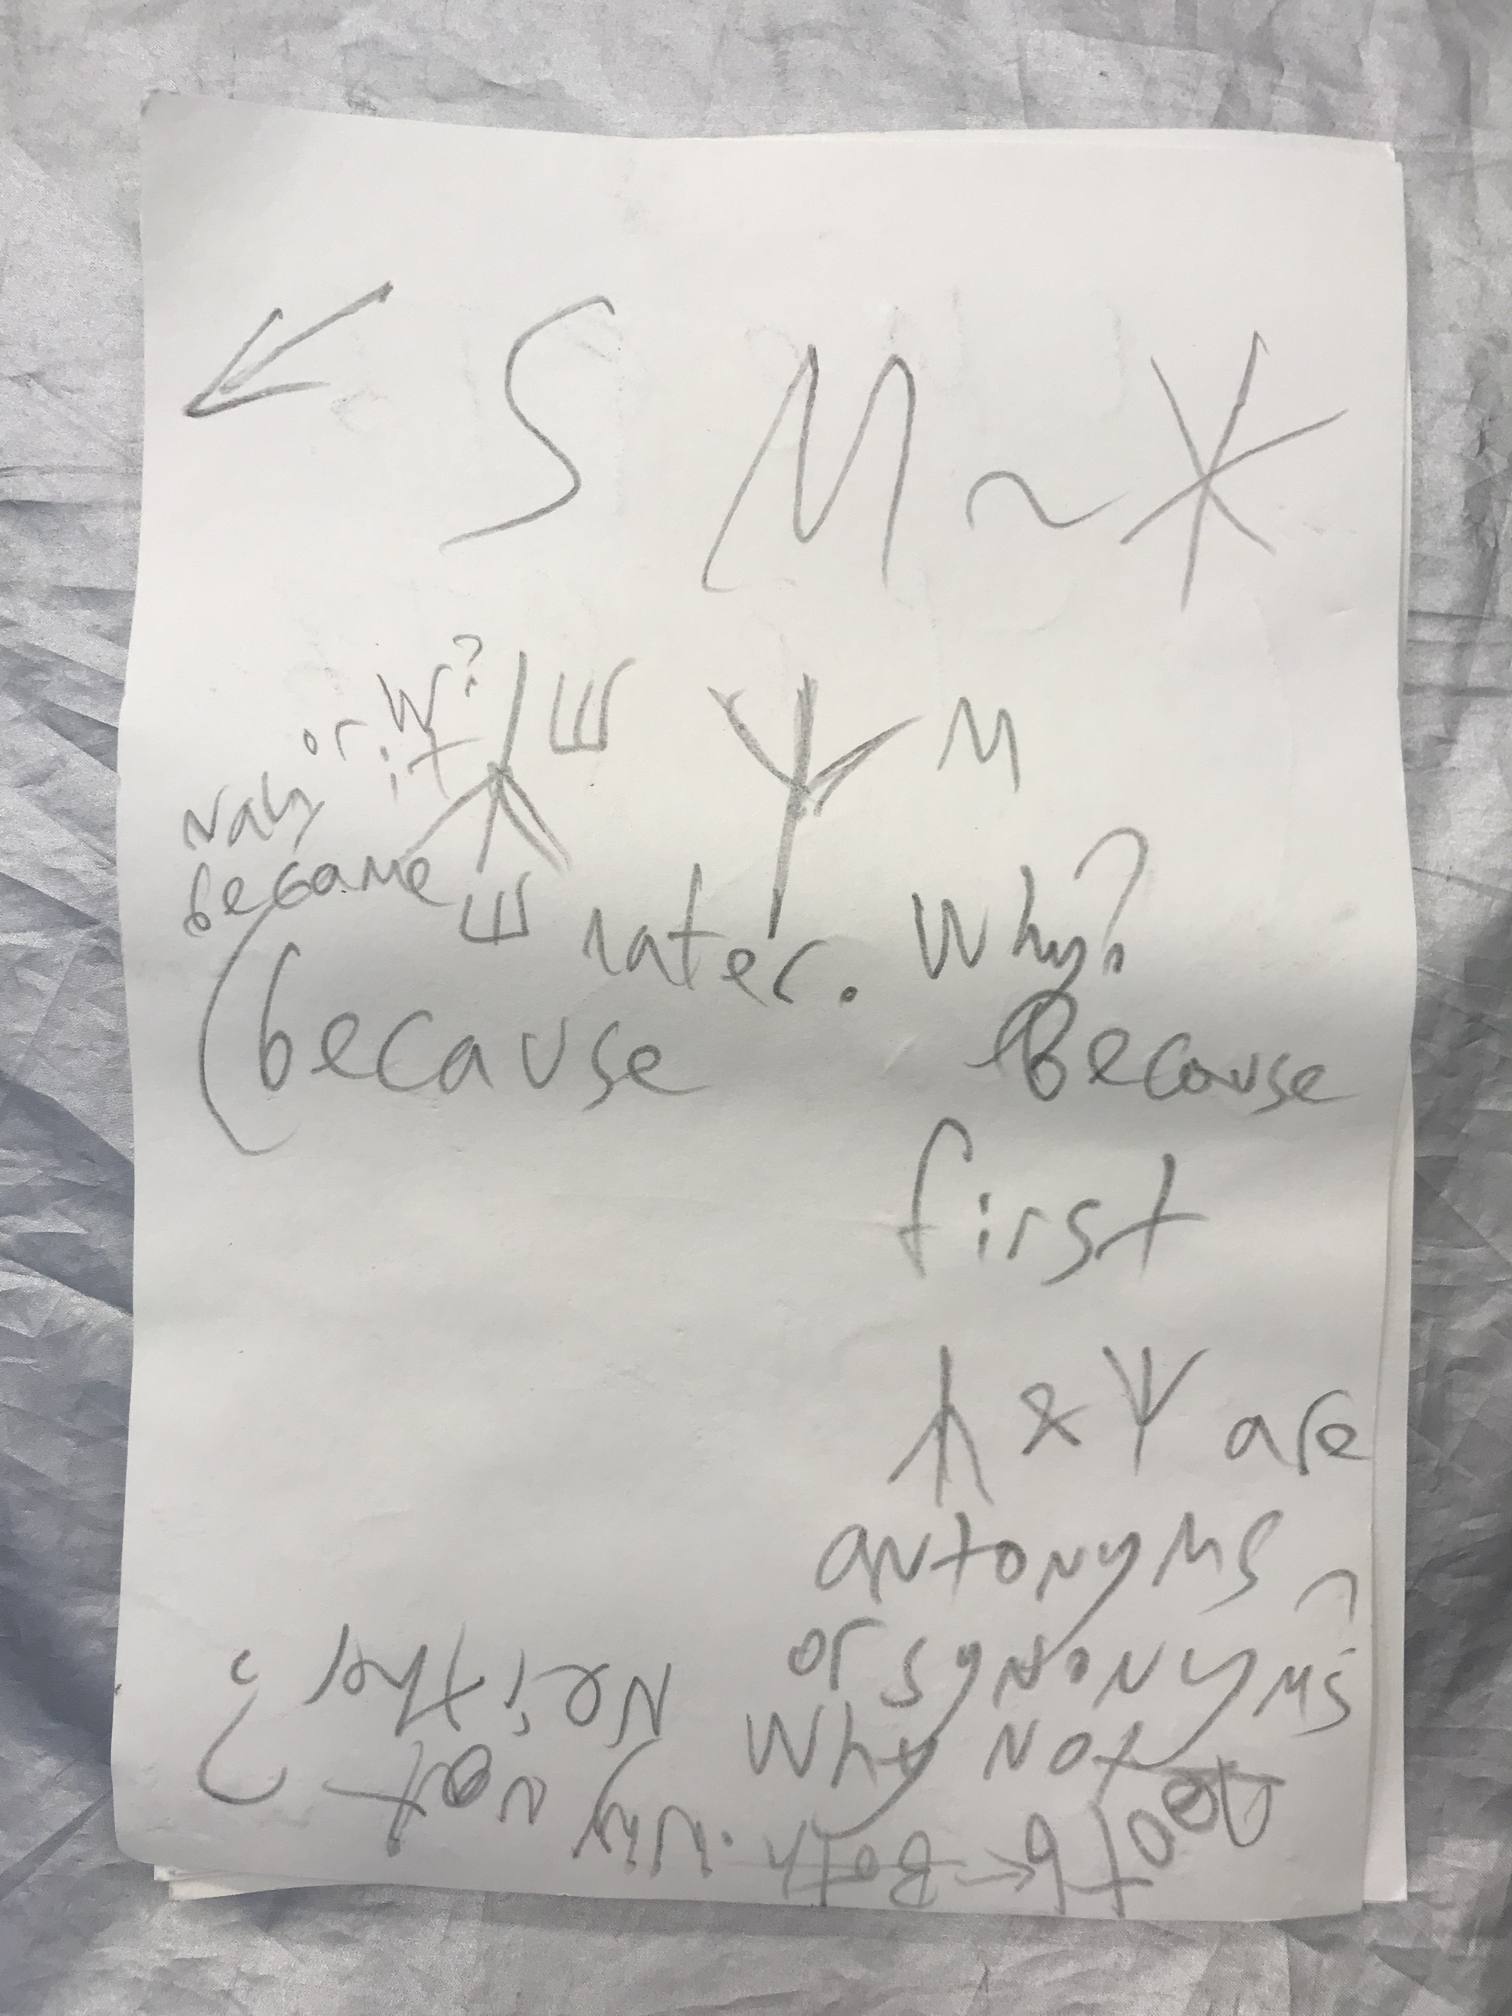 ← S M ~ *
or W?
it ⅄ E Ψ M
Nah
became E later. Why?
(because Because
first
⅄ & Ψ are
antonyms
or synonyms?
Why not
both ← Both. Why not
Neither?